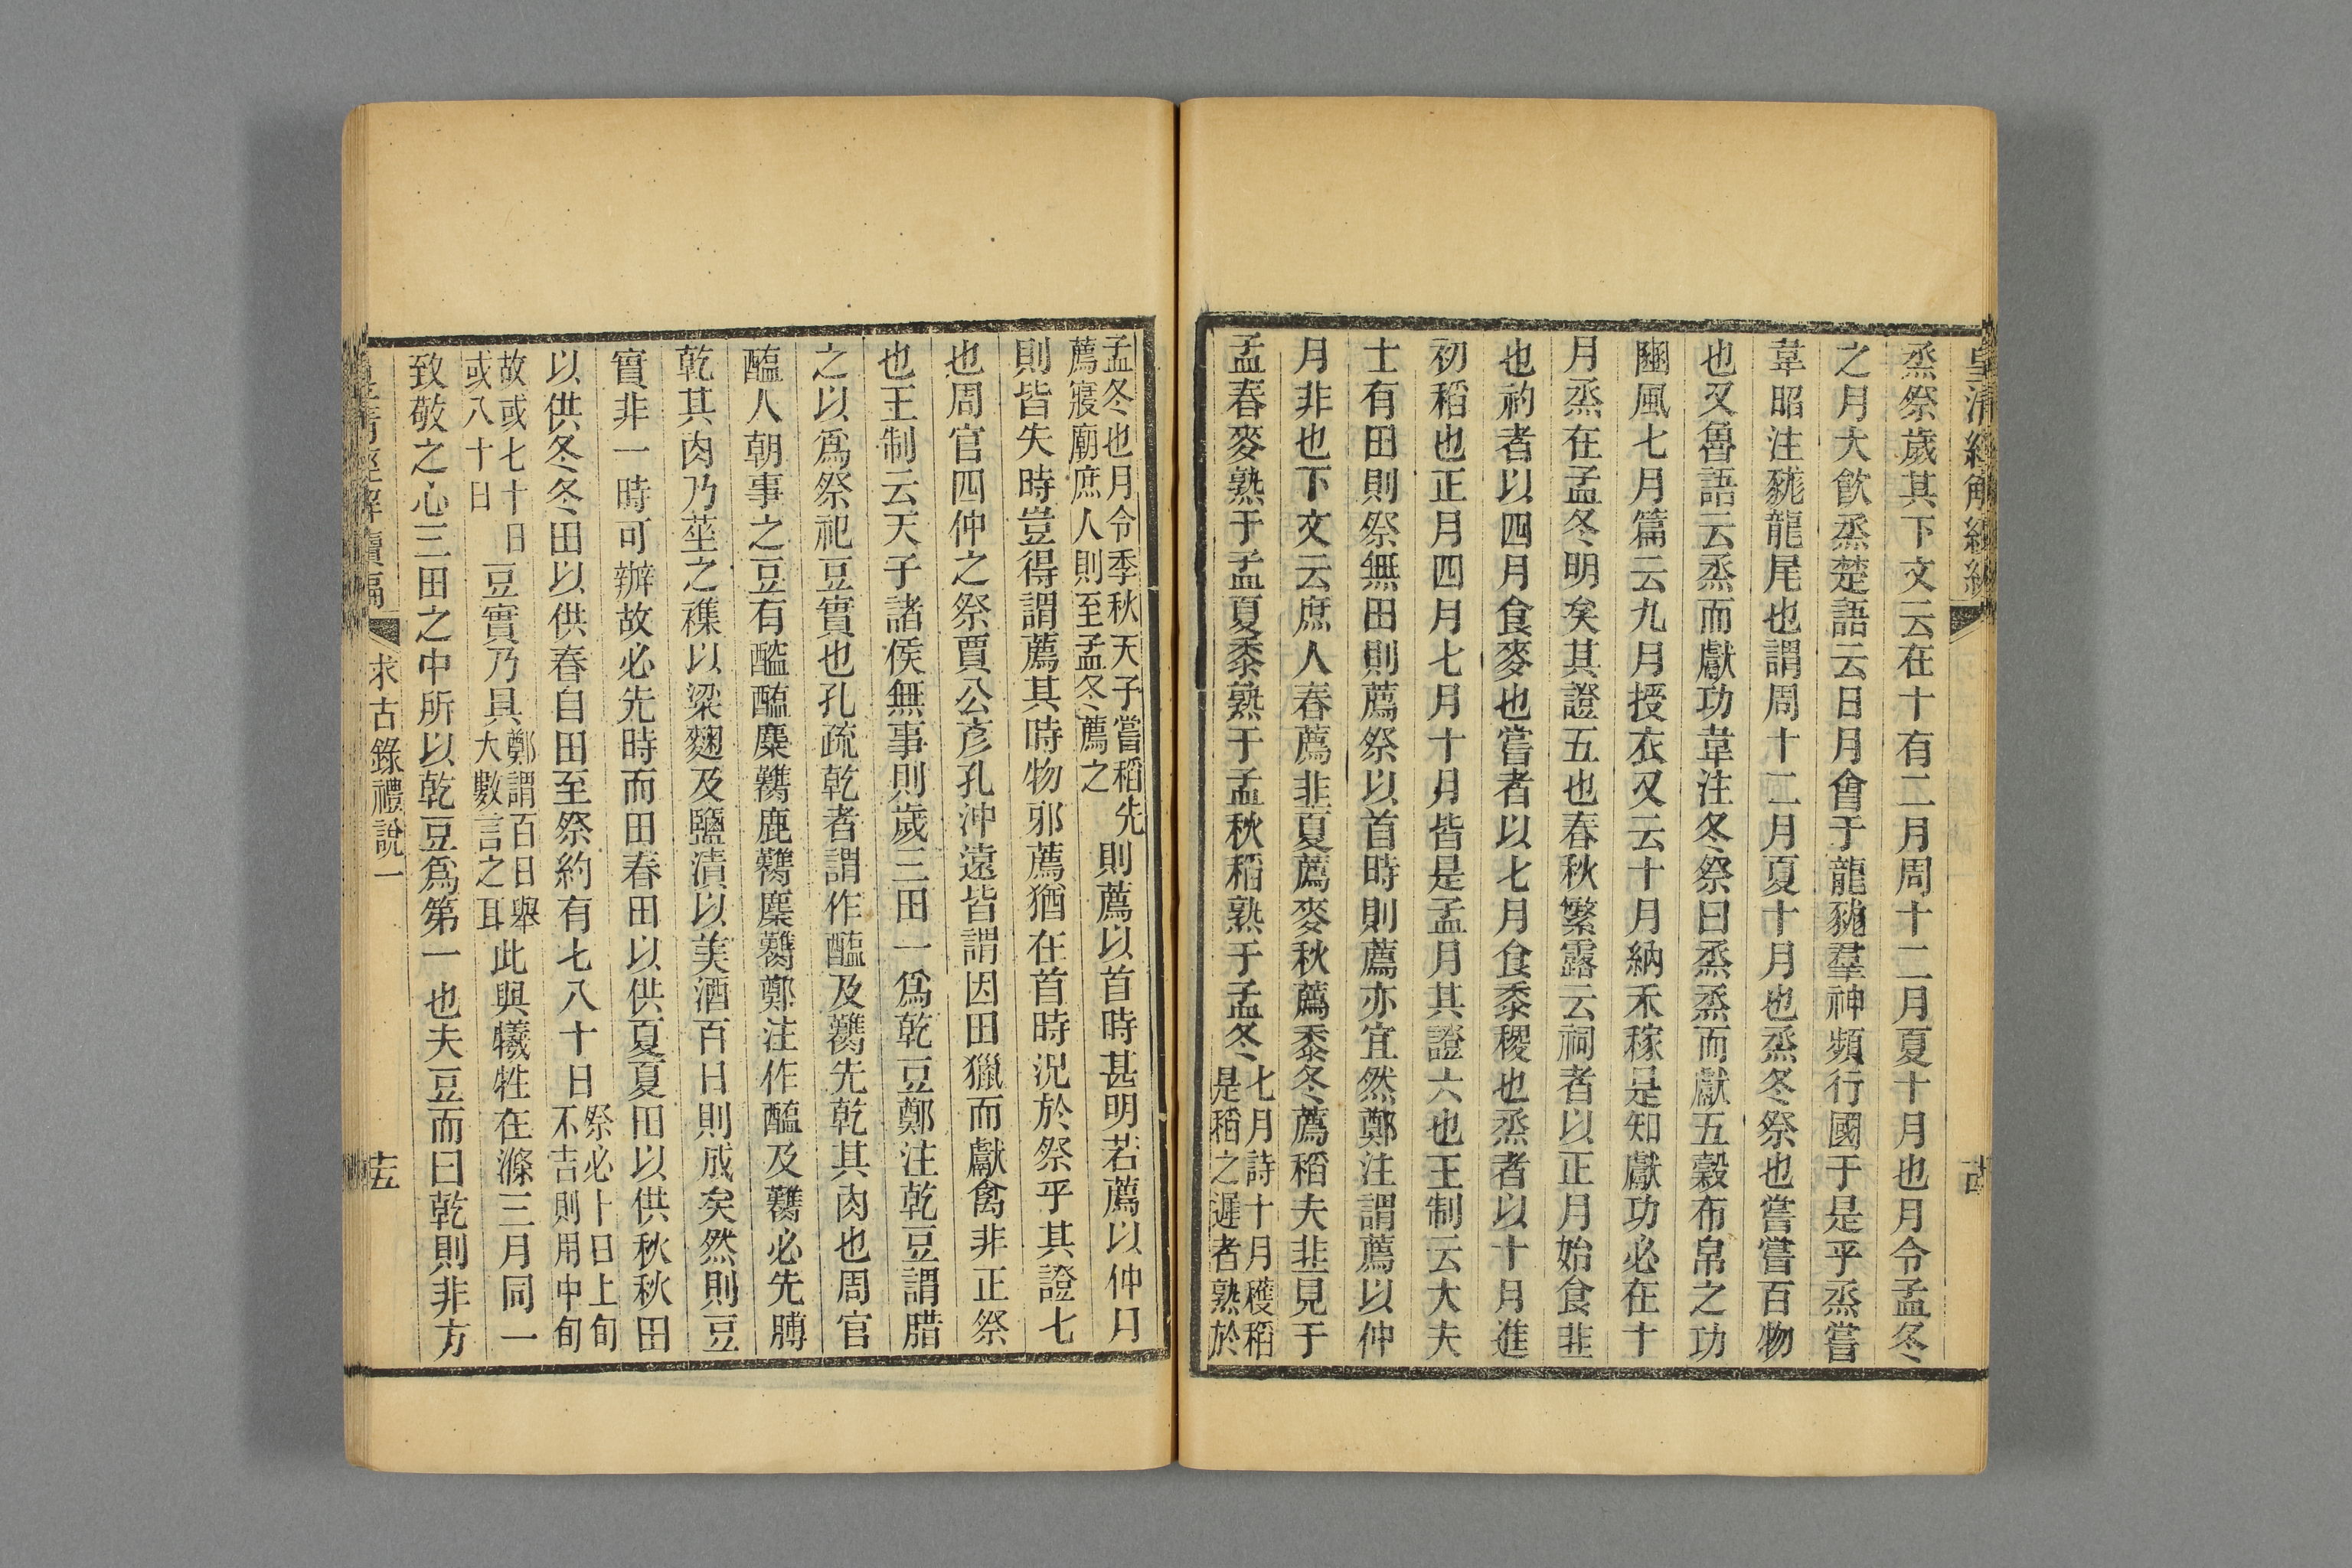 烝祭歲其下文云在十有二月周十二月夏十月也月令孟冬
之月大飮烝楚語云日月會于龍𧱓羣神頻行國于是乎烝嘗
韋昭注𧱓龍尾也謂周十二月夏十月也烝冬祭也嘗嘗百物
也又魯語云烝而獻功韋注冬祭曰烝烝而獻五穀布帛之功
豳風七月篇云九月授衣又云十月納禾稼是知獻功必在十
月烝在孟冬明矣其證五也春秋繁露云祠者以正月始食韭
也礿者以四月食麥也嘗者以七月食黍稷也烝者以十月進
初稻也正月四月七月十月皆是孟月其證六也王制云大夫
士有田則祭無田則薦祭以首時則薦亦宜然鄭注謂薦以仲
月非也下文云庶人春薦韭夏薦麥秋薦黍冬薦稻夫韭見于
孟春麥熟于孟夏黍熟于孟秋稻熟于孟冬七月詩十月穫稻是稻之遲者熟於
孟冬也月令季秋天子嘗稻先薦寢廟庶人則至孟冬薦之則薦以首時甚明若薦以仲月
則皆失時豈得謂薦其時物邪薦猶在首時況於祭乎其證七
也周官四仲之祭賈公彥孔沖遠皆謂因田獵而獻禽非正祭
也王制云天子諸侯無事則歲三田一爲乾豆鄭注乾豆謂腊
之以爲祭祀豆實也孔疏乾者謂作醢及臡先乾其肉也周官
醢人朝事之豆有醓醢麋臡鹿臡麇臡鄭注作醢及臡必先膊
乾其肉乃莝之襍以粱麴及鹽漬以美酒百日則成矣然則豆
實非一時可辦故必先時而田春田以供夏夏田以供秋秋田
以供冬冬田以供春自田至祭約有七八十日祭必卜日上旬不吉則用中旬
故或七十日或八十日豆實乃具鄭謂百日舉大數言之耳此與犧牲在滌三月同一
致敬之心三田之中所以乾豆爲第一也夫豆而曰乾則非方
求古錄禮說一